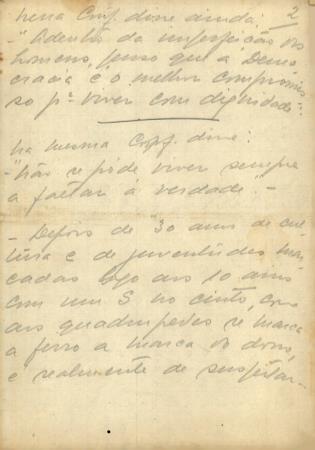 2
nessa Conf. disse ainda:
-"Adentro da imperfeição dos
homens, penso que a Demo-
cracia é o melhor compromis-
so pª viver com dignidade".
Na mesma Conf. disse:
-"Não se pode viver sempre
a faltar à verdade".-
- Depois de 30 anos de cul-
tura e de juventudes mar-
cadas logo aos 10 anos
com um S no cinto, como
aos quadrupedes se marca
a ferro a marca do dono,
é realmente de suspeitar-